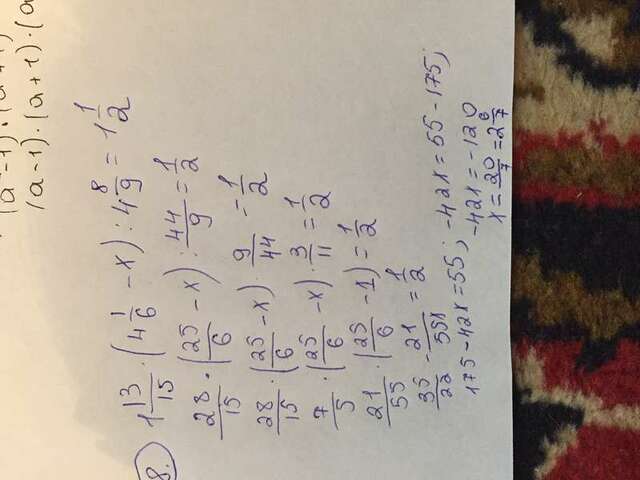 (a-1)·(a+1)
(a-1)·(a+1)·(a
8. 1 13/15 · (4 1/6 - x) : 4 8/9 = 1 1/2
28/15 · (25/6 - x) : 44/9 = 1/2
28/15 · (25/6 - x) · 9/44 = 1/2
7/5 · (25/6 - x) · 3/11 = 1/2
21/55 · (25/6 - 1) = 1/2
35/22 - 21/55x = 1/2
175 - 42x = 55; -42x = 55 - 175;
-42x = -120
x = 20/7 = 2 6/7